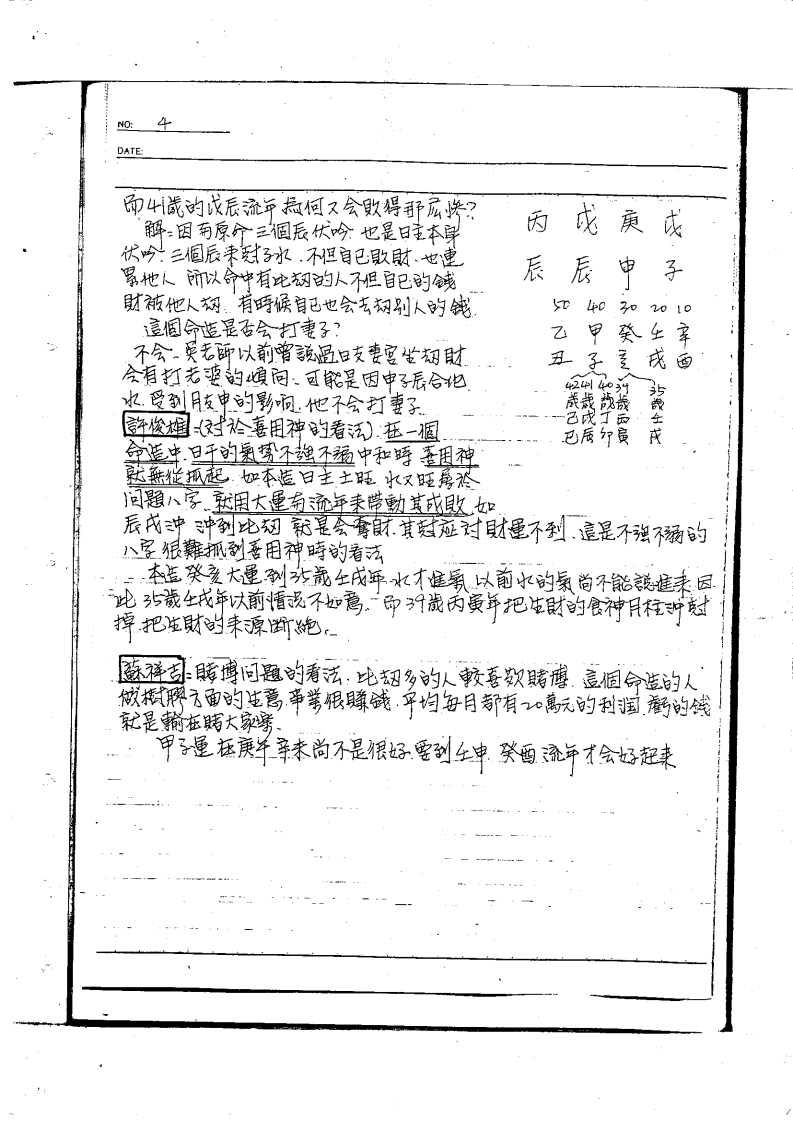 NO: 4
DATE:
而41歲的戊辰流年為何又会敗得那麼慘？
解：因而原命三個辰伏吟、也是日主本身
伏吟、三個辰来尅子水、不但自己敗財、也連
累他人 所以命中有比刼的人不但自己的錢
財被他人刼、有時候自己也会去刼別人的錢
這個命造是否会打妻子？
不会、吳老師以前曾說過日支妻宮坐刼財
会有打老婆的傾向、可能是因申子辰合化
水 受到月支申的影响、他不会打妻子
許俊雄：（对於喜用神的看法）、在一個
命造中、日干的氣势不強不弱中和時 喜用神
就無從抓起、如本造日主土旺 水又旺屬於
问題八字、就用大運和流年来帶動其成敗、如
辰戌沖 沖到比刼 就是会奪財、其对应对財運不利、這是不強不弱的
八字很難抓到喜用神時的看法
本造癸亥大運到35歲壬戌年、水才進氣、以前水的氣尚不能說進来、因
此35歲壬戌年以前情況不如意、而39歲丙寅年把生財的食神月柱沖尅
掉、把生財的来源斷絕。
蘇祥吉：賭博问題的看法、比刼多的人較喜歡賭博、這個命造的人
做樹膠方面的生意、事業很賺錢、平均每月都有20萬元的利润、虧的錢
就是輸在賭大家樂、
甲子運在庚午辛未尚不是很好、要到壬申、癸酉流年才会好起来
丙 戊 庚 戊
辰 辰 申 子
50 40 30 20 10
乙 甲 癸 壬 辛
丑 子 亥 戌 酉
42 41 40 39 35
歲 歲 歲 歲 歲
己 戊 丁 丙 壬
巳 辰 卯 寅 戌